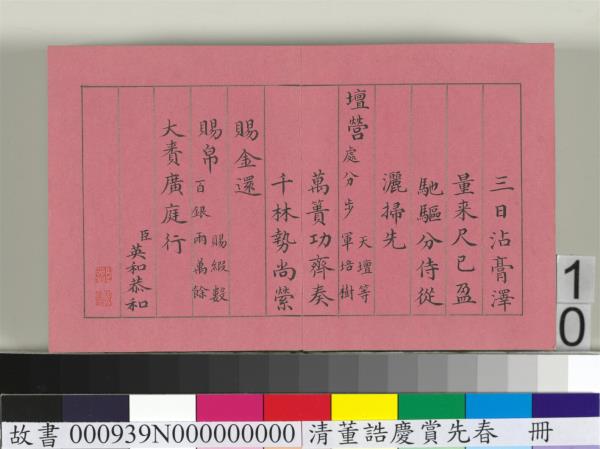 三日沾膏澤
量来尺已盈
馳驅分侍從
灑掃先
壇營
天壇等
處分步軍培樹
萬簣功齊奏
千林勢尚縈
賜金還
賜帛
賜緞數
百銀兩萬餘
大賚廣庭行
臣英和恭和
10
故書 000939N000000000 清董誥慶賞先春 冊